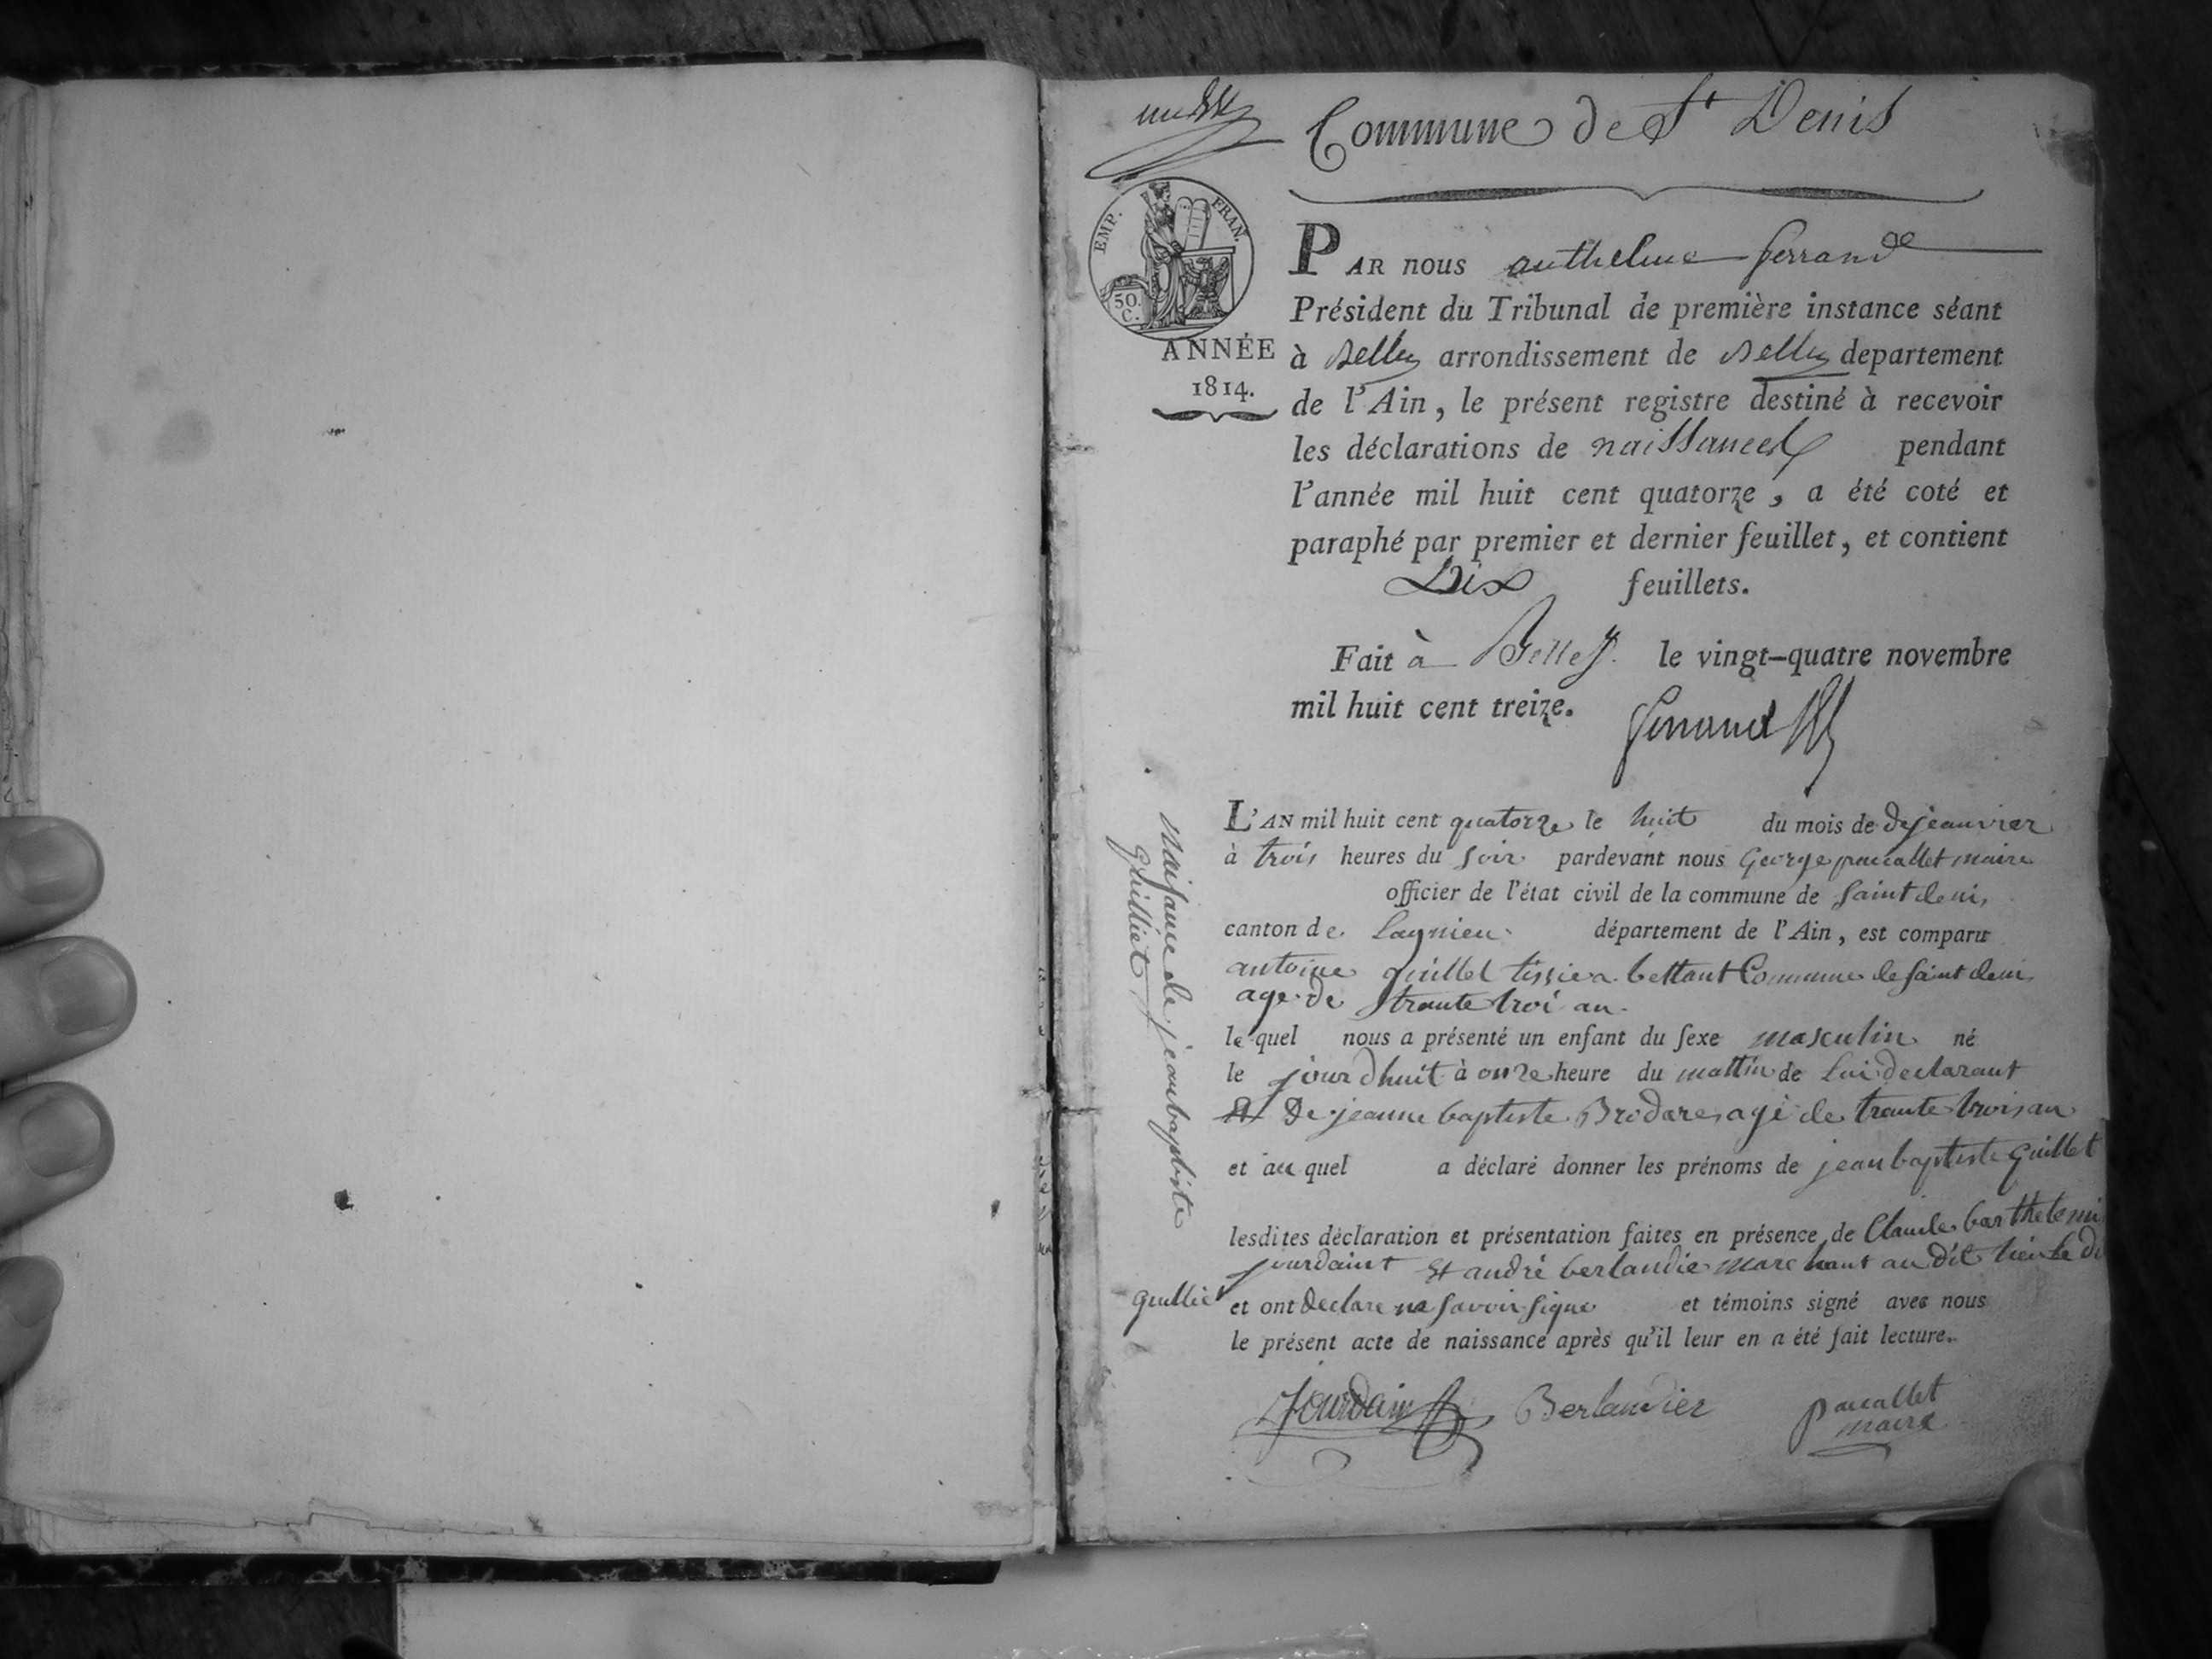 Commune de St Denis
EMP. FRAN.
50.
C.
ANNÉE
1814.
PAR nous anthelme ferrand
Président du Tribunal de première instance séant
à Belley arrondissement de Belley departement
de l'Ain, le présent registre destiné à recevoir
les déclarations de naissances pendant
l'année mil huit cent quatorze, a été coté et
paraphé par premier et dernier feuillet, et contient
Dix feuillets.
Fait à Belley le vingt-quatre novembre
mil huit cent treize.
ferrand
Naisance de jean baptiste
Guilliet
L'AN mil huit cent quatorze le huit du mois de dejeanvier
à trois heures du soir pardevant nous George paucallet maire
officier de l'état civil de la commune de saint deni,
canton de Lagnieu département de l'Ain, est comparu
antoine guillet tissier a bettant Commune de saint deni
age de trante troi an
le quel nous a présenté un enfant du sexe masculin né
le jourdhuit à onze heure du mattin de lui declarant
De jeanne baptiste Brodare, agé de trante trois an
et au quel a déclaré donner les prénoms de jean baptiste guillet
lesdites déclaration et présentation faites en présence de Claude barthelemi
jourdaint Et andré berlandie marchant au dit lieu le di
guillie et ont declare ne savoir signe et témoins signé avec nous
le présent acte de naissance après qu'il leur en a été fait lecture.
Jourdain Berlandier paucallet
maire